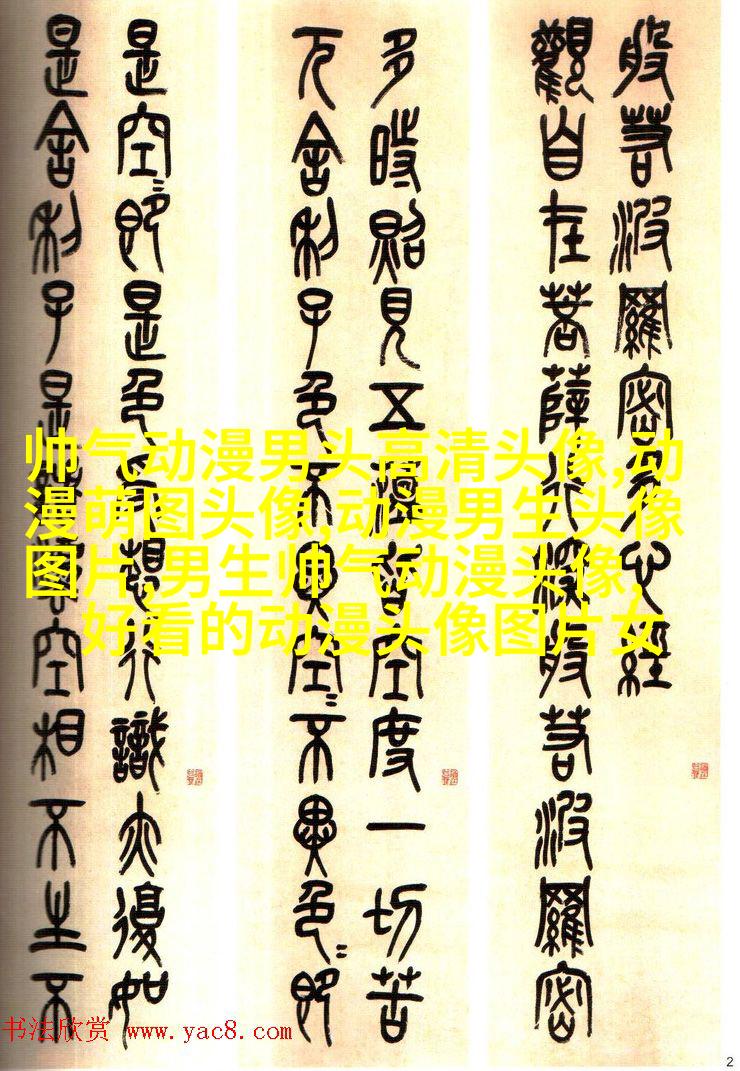 般若波羅密多心經
觀自在菩薩行深般若波羅密
多時照見五蘊皆空度一切苦
厄舍利子色不異空〻不異色〻即
是空〻即是色受想行識亦復如
是舍利子是諸法空相不生不
帅气动漫男头高清头像,动
漫萌图头像,动漫男生头像
图片,男生帅气动漫头像,
好看的动漫头像图片女
书法欣赏 www.yac8.com
2